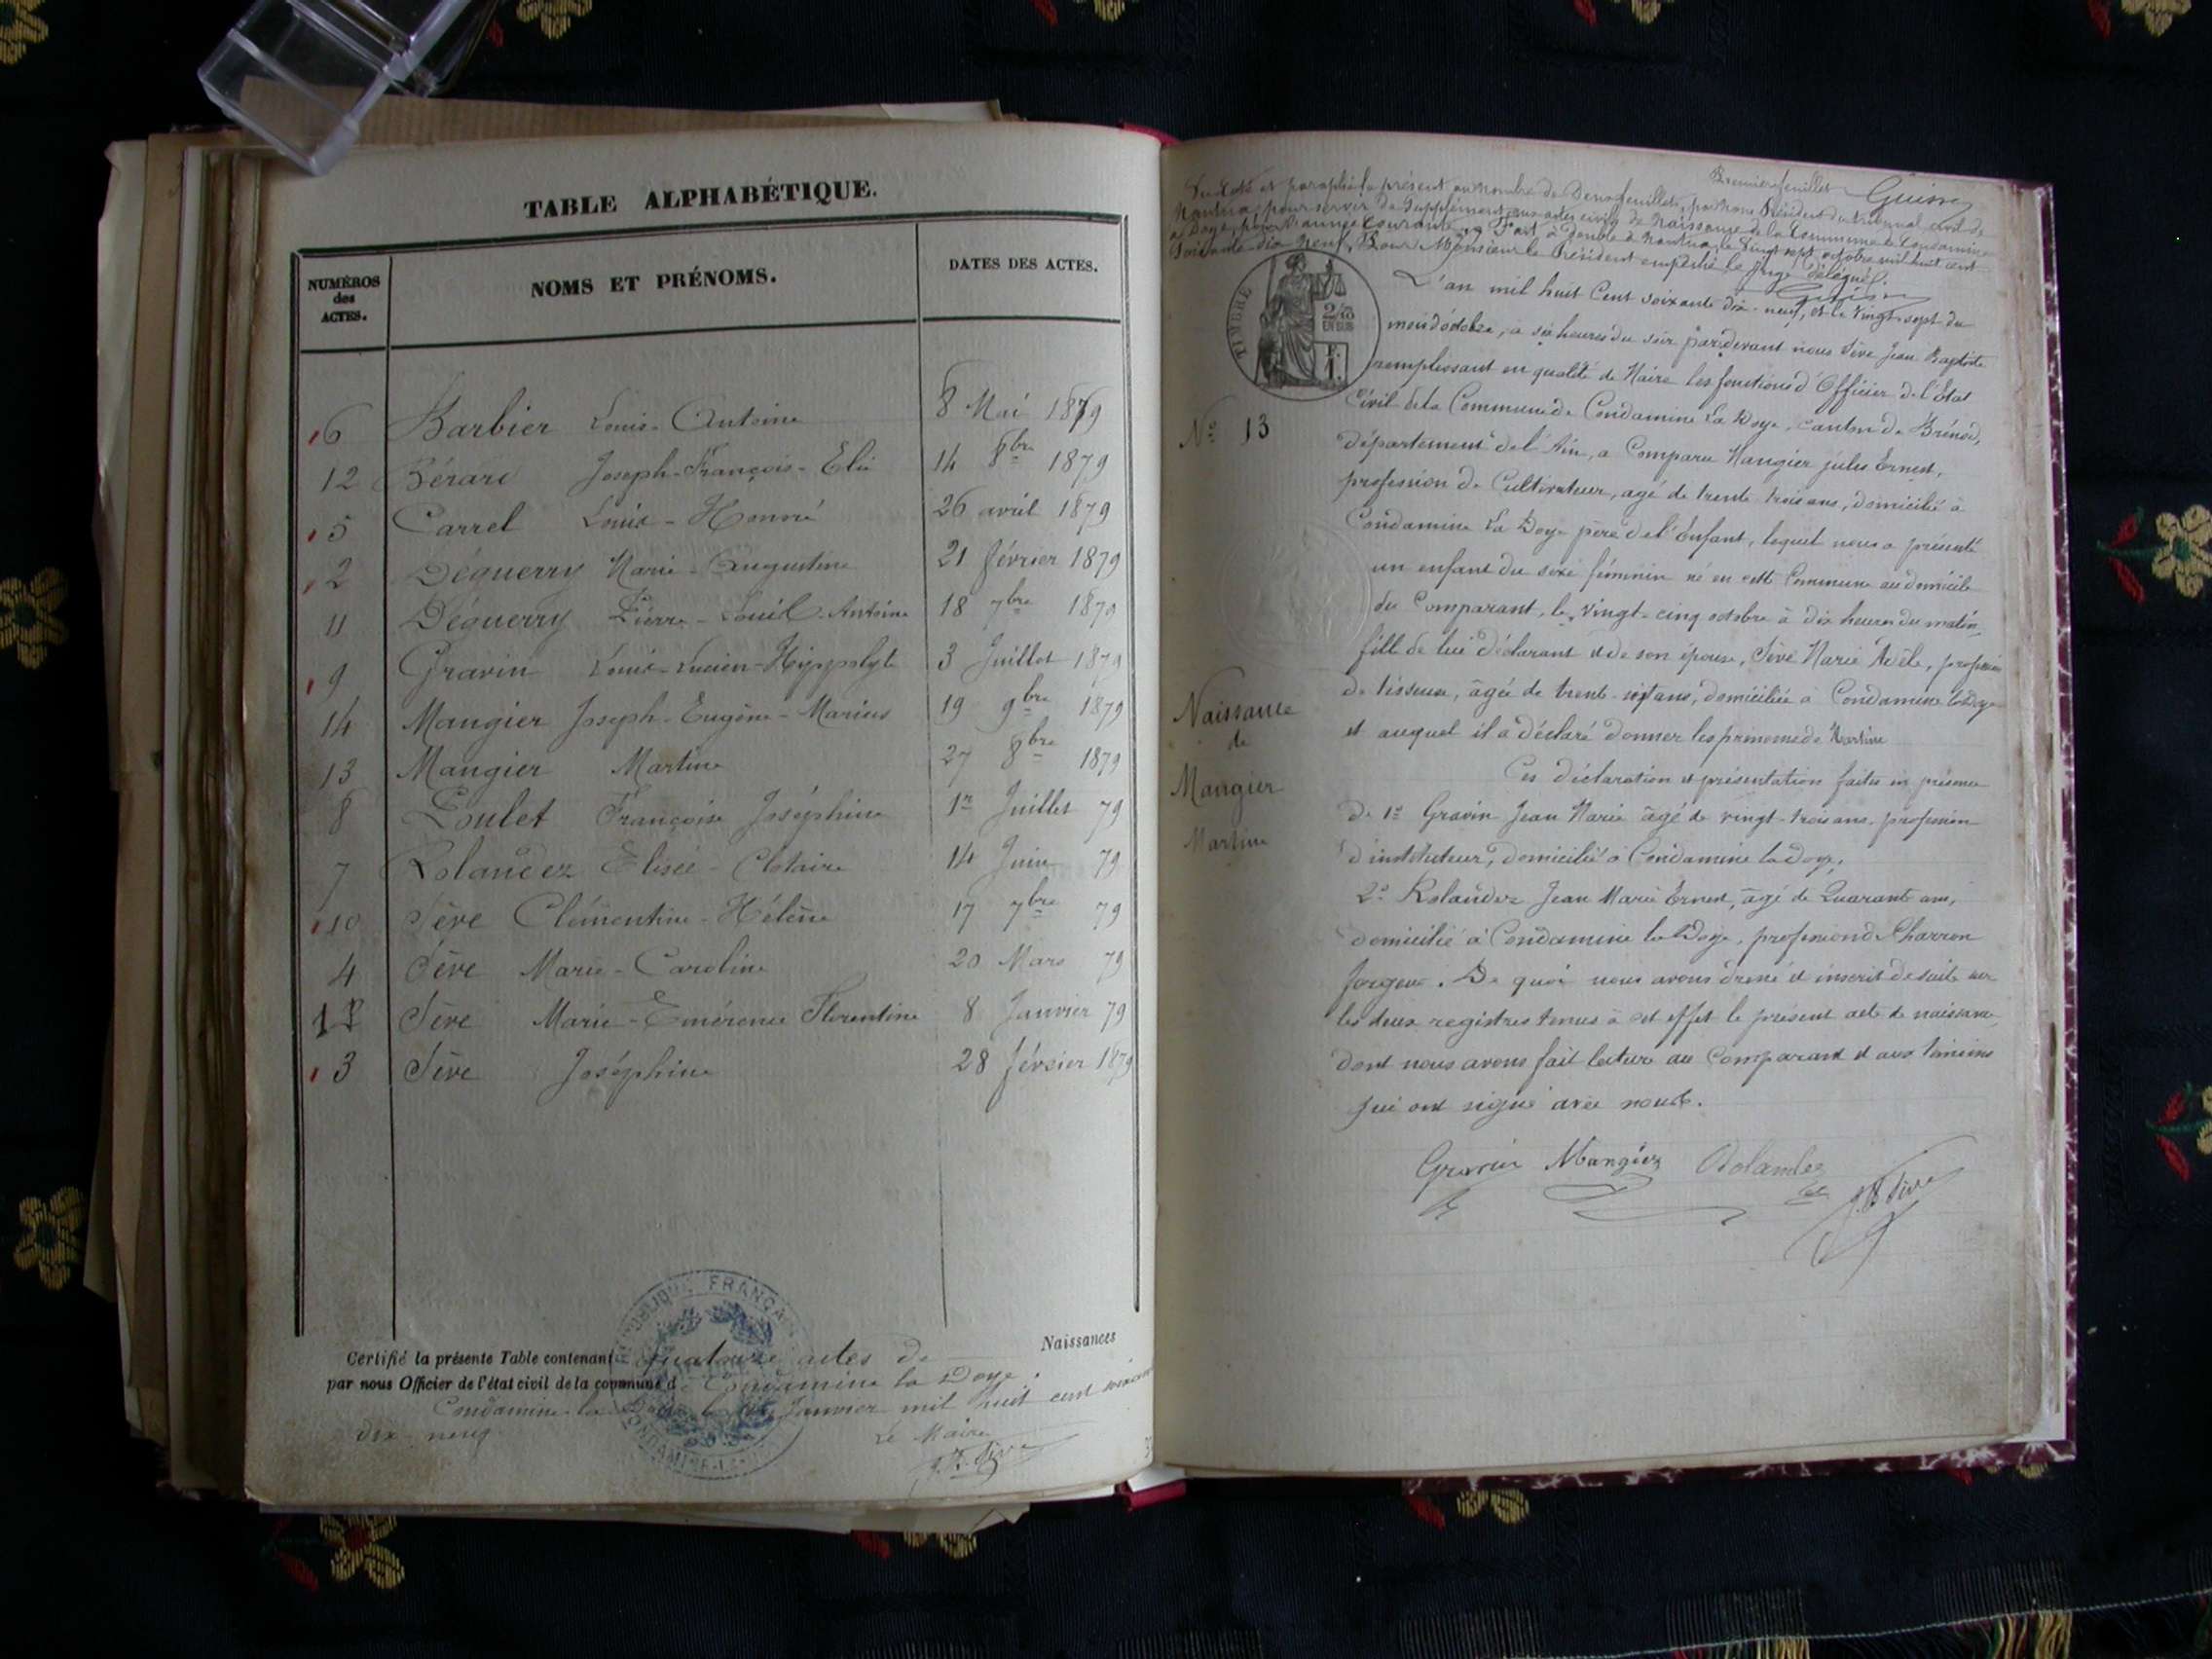 TABLE ALPHABÉTIQUE.
NUMÉROS des ACTES.
NOMS ET PRÉNOMS.
DATES DES ACTES.
6 Barbier Louis-Antoine 8 Mai 1879
12 Bérard Joseph-François-Elie 14 8bre 1879
5 Carrel Louis-Honoré 26 avril 1879
2 Déguerry Marie-Augustine 21 février 1879
11 Déguerry Pierre-Louis-Antoine 18 7bre 1879
9 Gravin Louis-Lucien-Hyppolyte 3 Juillet 1879
14 Mangier Joseph-Eugène-Marius 19 9bre 1879
13 Mangier Martine 27 8bre 1879
8 Poulet Françoise Joséphine 1er Juillet 79
7 Rolandez Elisée-Clotaire 14 Juin 79
10 Sève Clémentine-Hélène 17 7bre 79
4 Sève Marie-Caroline 20 Mars 79
1 Sève Marie-Emérence Florentine 8 Janvier 79
3 Sève Joséphine 28 février 1879
Certifié la présente Table contenant quatorze actes de Naissances
par nous Officier de l'état civil de la commune d Condamine la Doye.
Condamine la Janvier mil huit cent
dix neuf
Le Maire
J. B. Sève
RÉPUBLIQUE FRANÇAISE
Premier feuillet Guisse
Nantua, pour servir de Supplément aux actes civils de Naissance de la Commune de Condamine
la Doye, pour l'année Courante. Fait à double à Nantua, le Vingt sept octobre mil huit cent
Soixante-dix neuf, Pour Monsieur le Président empêché le Juge délégué.
TIMBRE
2/10 EN SUS
F. 1.
L'an mil huit Cent soixante dix-neuf, et le vingt-sept du
mois d'octobre, à six heures du soir par devant nous Sève Jean Baptiste
remplissant en qualité de Maire les fonctions d'Officier de l'État
Civil de la Commune de Condamine La Doye, canton de Brénod,
N° 13
département de l'Ain, a Comparu Mangier jules Ernest,
profession de Cultivateur, agé de trente trois ans, domicilié à
Condamine La Doye père de l'enfant, lequel nous a présenté
un enfant du sexe féminin né en cette Commune au domicile
du Comparant, le vingt-cinq octobre à dix heures du matin
fille de lui déclarant et de son épouse, Sève Marie Adèle, profession
de tisseuse, âgée de trente-sept ans, domiciliée à Condamine la Doye
et auquel il a déclaré donner les prénoms de Martine
Naissance
de
Mangier
Martine
Ces déclaration et présentation faites en présence
de 1° Gravin Jean Marie âgé de vingt-trois ans, profession
d'instituteur, domicilié à Condamine la doye,
2° Rolandez Jean Marie Ernest, âgé de Quarante ans,
domicilié à Condamine la Doye, profession de Charron
forgeur. De quoi nous avons dressé et inscrit de suite sur
les deux registres tenus à cet effet le présent acte de naissance
dont nous avons fait lecture au Comparant et aux témoins
qui ont signé avec nous.
Gravin Mangier Rolandez
J. B. Sève